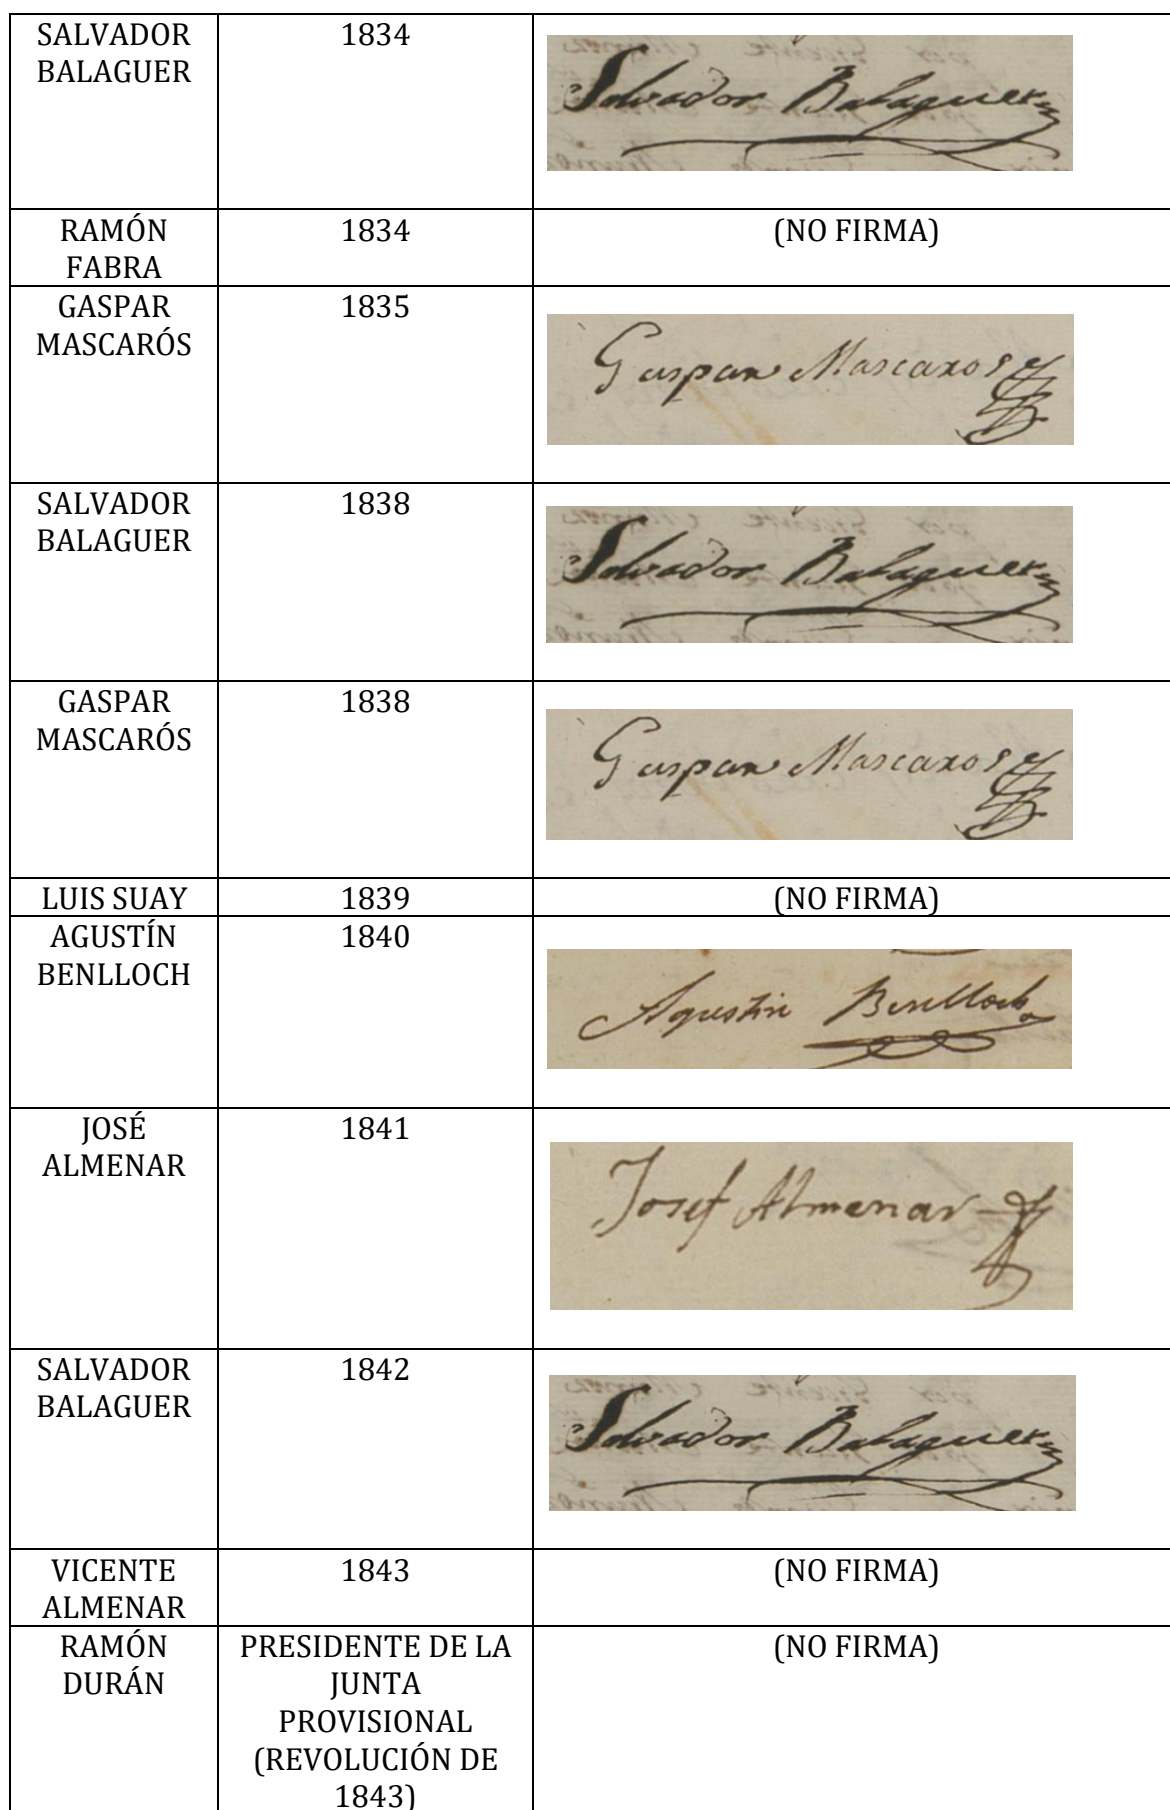 SALVADOR
BALAGUER
1834
Salvador Balaguer
RAMÓN
FABRA
1834
(NO FIRMA)
GASPAR
MASCARÓS
1835
Gaspar Mascaros
SALVADOR
BALAGUER
1838
Salvador Balaguer
GASPAR
MASCARÓS
1838
Gaspar Mascaros
LUIS SUAY
1839
(NO FIRMA)
AGUSTÍN
BENLLOCH
1840
Agustin Benlloch
JOSÉ
ALMENAR
1841
Josef Almenar
SALVADOR
BALAGUER
1842
Salvador Balaguer
VICENTE
ALMENAR
1843
(NO FIRMA)
RAMÓN
DURÁN
PRESIDENTE DE LA
JUNTA
PROVISIONAL
(REVOLUCIÓN DE
1843)
(NO FIRMA)